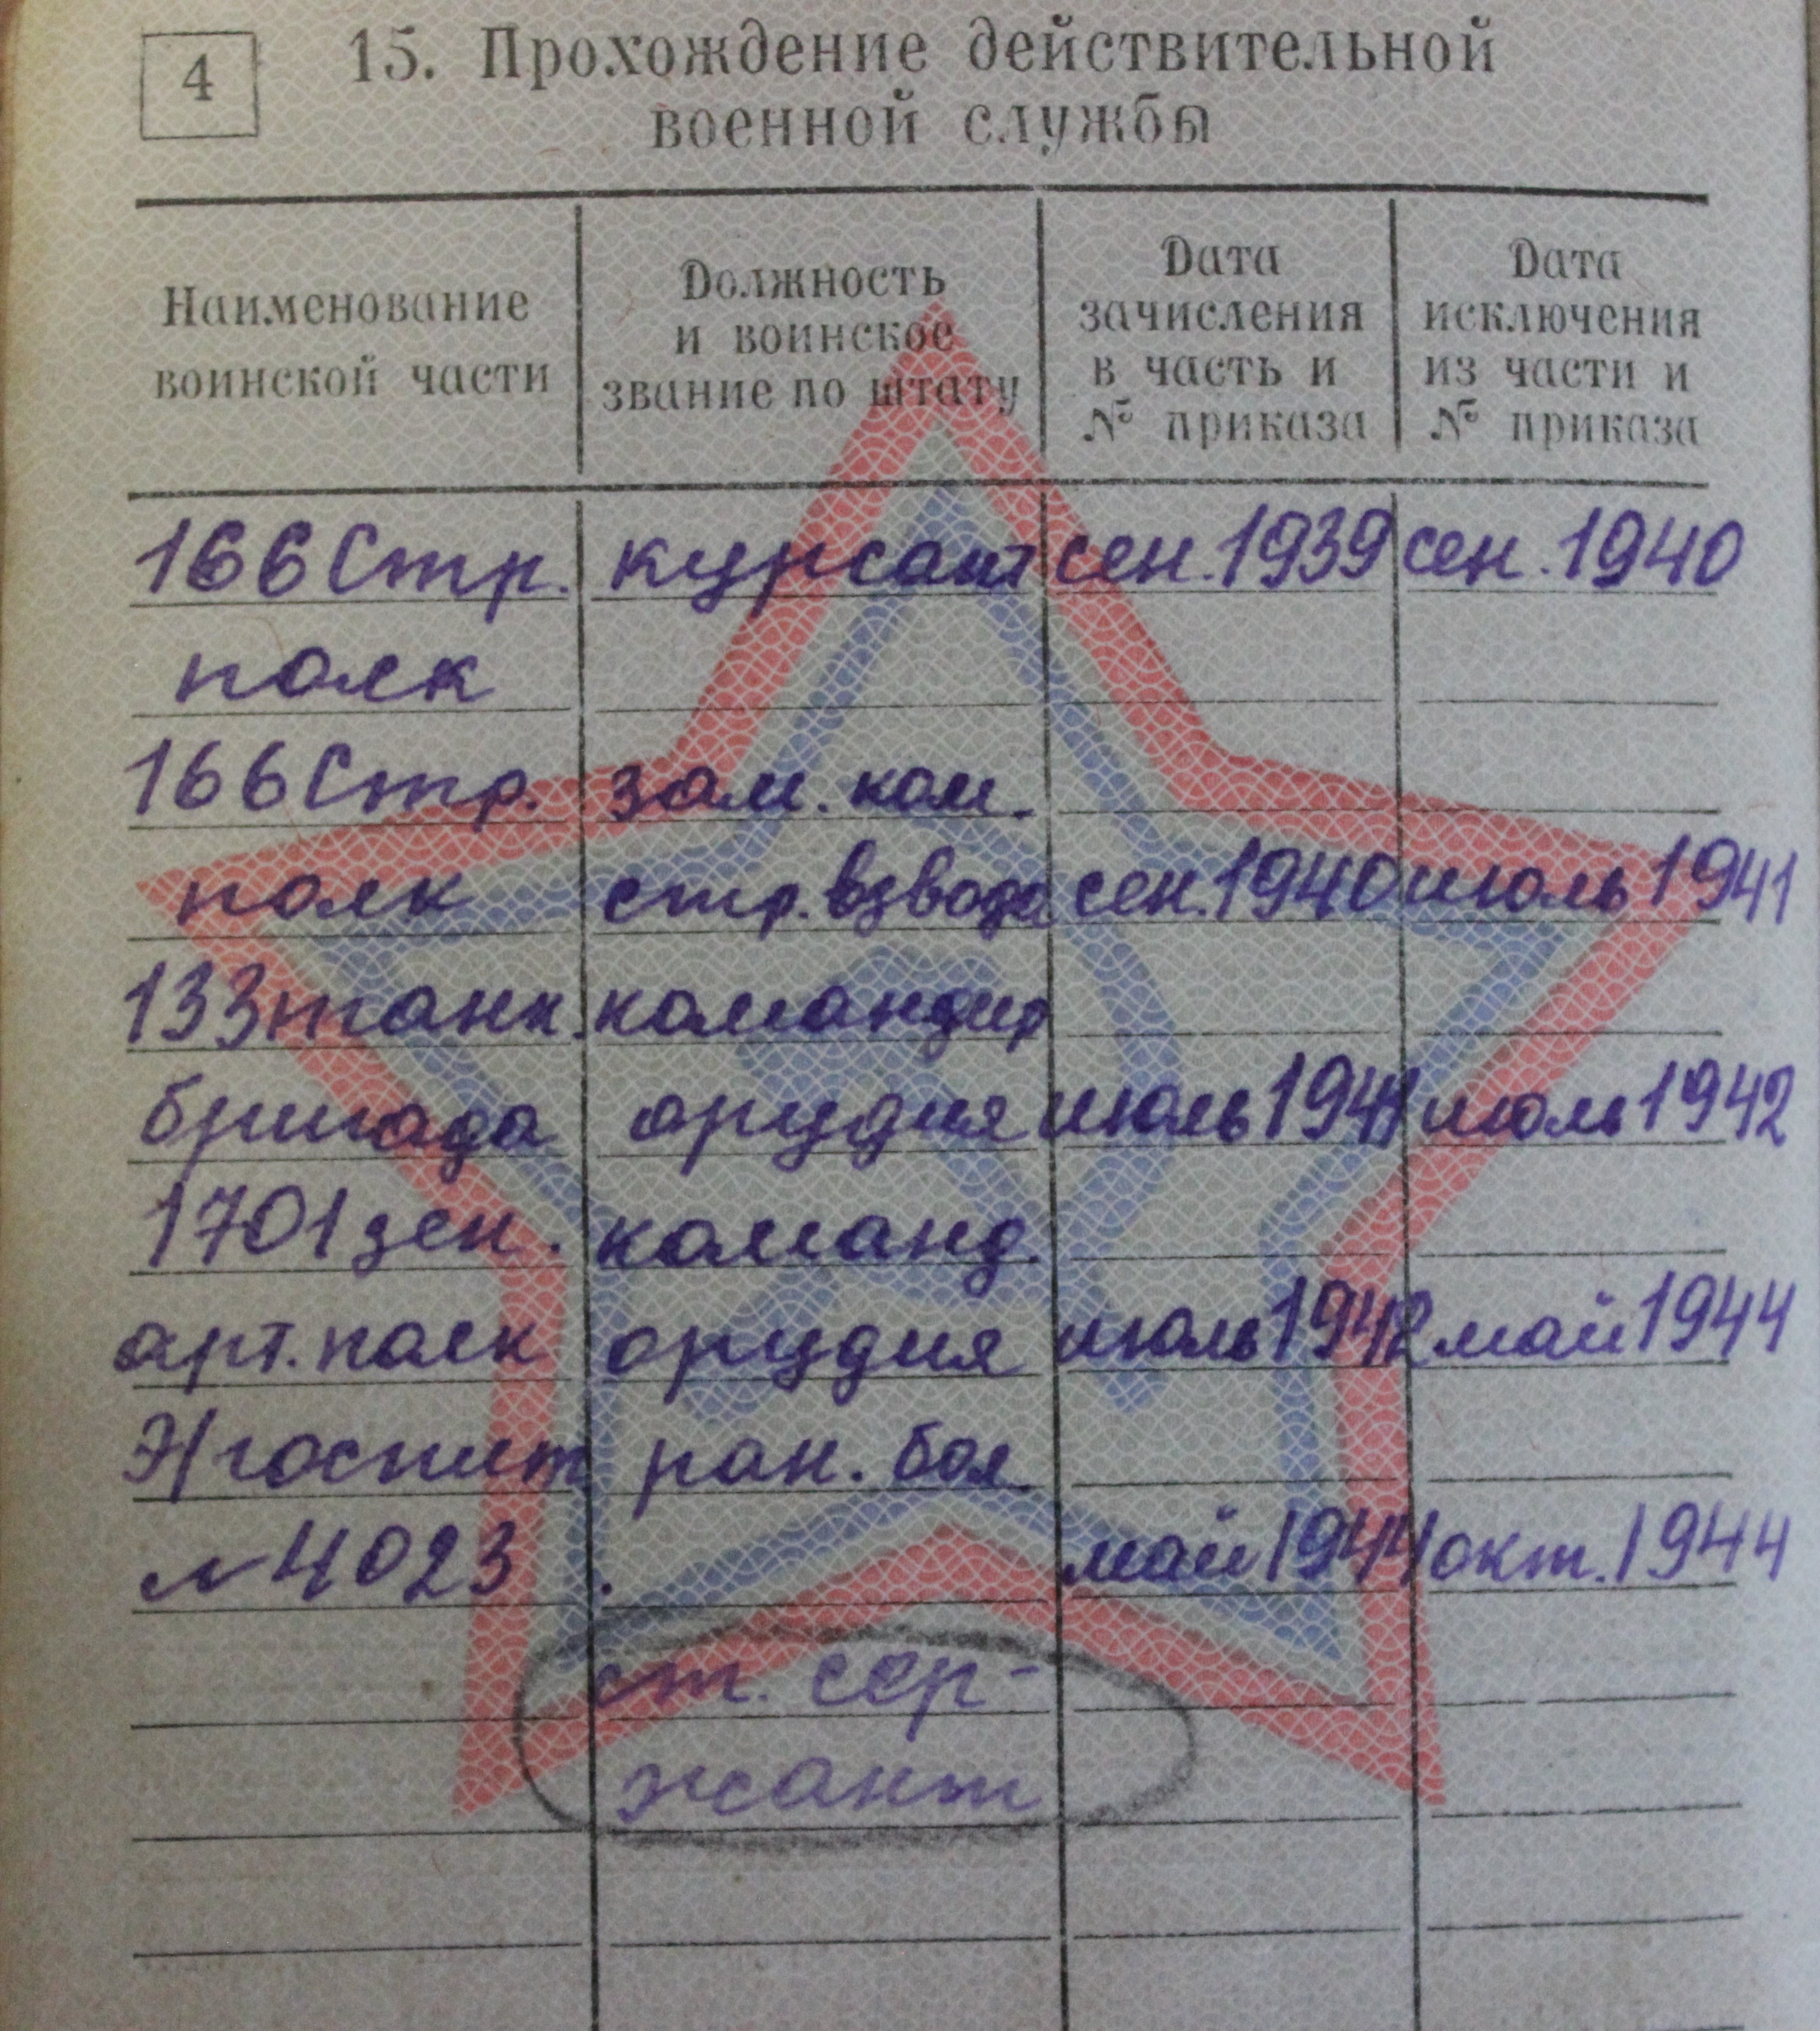 4
15. Прохождение действительной
военной службы
Наименование
воинской части
Должность
и воинское
звание по штату
Дата
зачисления
в часть и
№ приказа
Дата
исключения
из части и
№ приказа
166 Стр. курсант сен. 1939 сен. 1940
полк
166 Стр. зам. ком.
полк стр. взвода сен. 1940 июль 1941
133 танк. командир
бригада орудия июль 1941 июль 1942
1701 зен. команд.
арт. полк орудия июль 1942 май 1944
Э/госпит ран. бол.
№ 4023 май 1944 окт. 1944
ст. сер-
жант